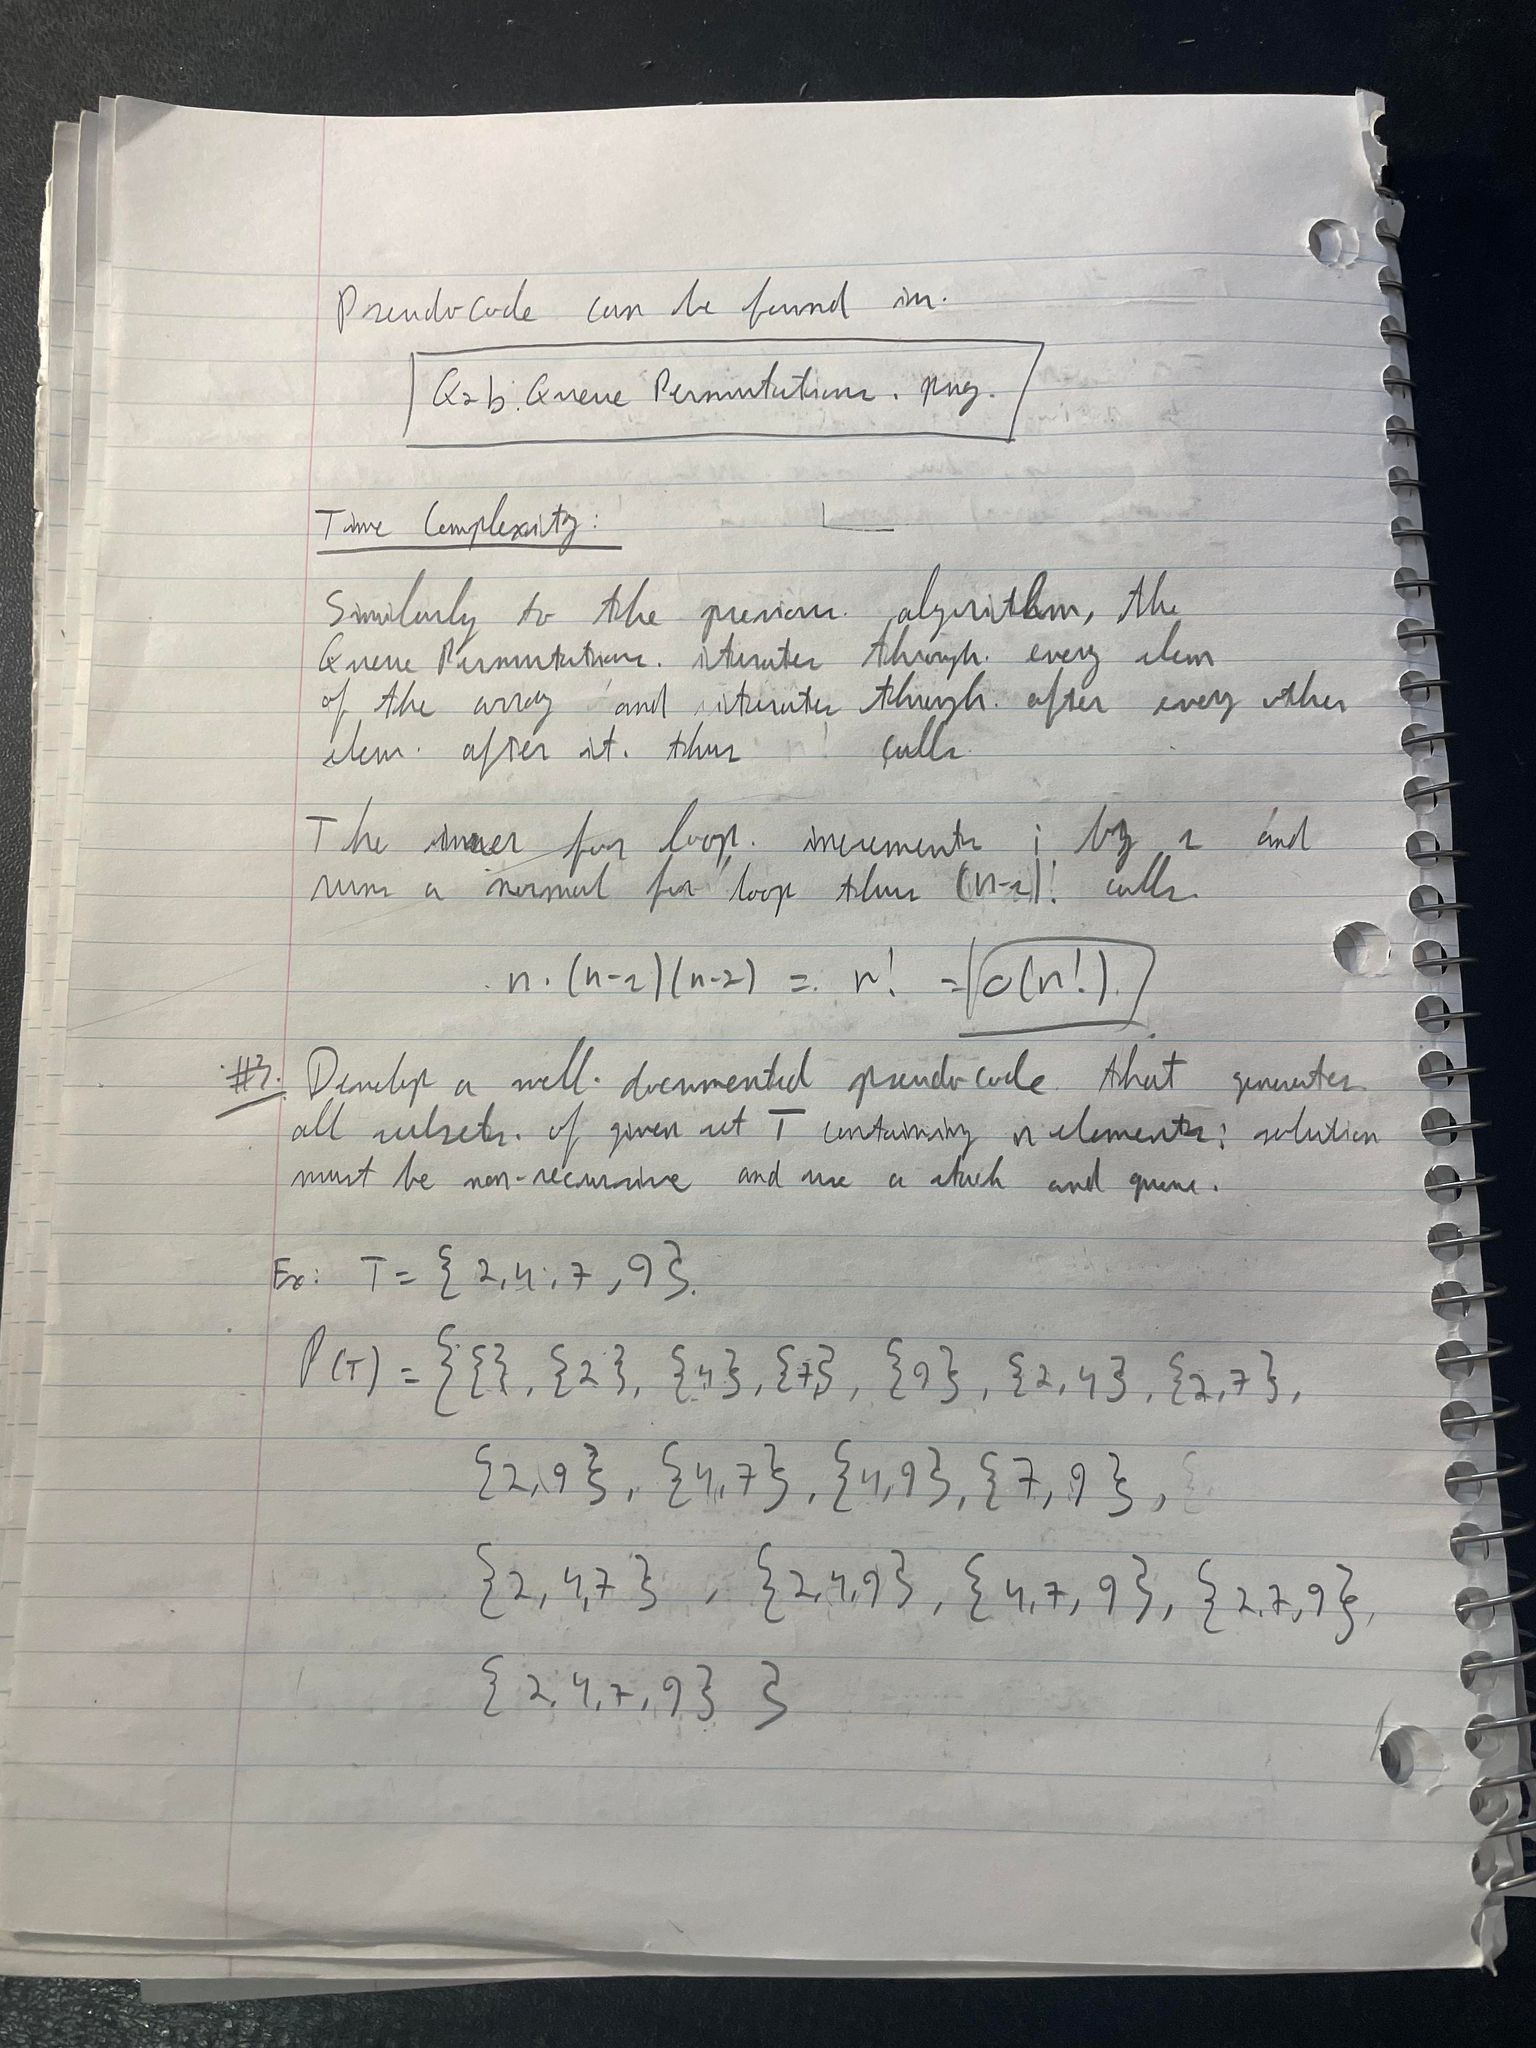 Pseudocode can be found in.
Q2b. Queue Permutations. png.
Time Complexity:
Similarly to the previous. algorithm, the
Queue Permutations. iterates through. every elem
of the array and iterates through. after every other
elem. after it. thus n! calls
The inner for loop. increments i by 1 and
runs a normal for loop thus (n-1)! calls
n. (n-1)(n-2) =. n! = O(n!).
#3. Develop a well. documented pseudocode. that generates
all subsets. of given set T containing n elements; solution
must be non-recursive and use a stack and queue.
Ex: T = { 2,4,7,9}.
P(T) = {{}, {2}, {4}, {7}, {9}, {2,4}, {2,7},
{2,9}, {4,7}, {4,9}, {7,9},
{2,4,7}, {2,4,9}, {4,7,9}, {2,7,9},
{2,4,7,9} }